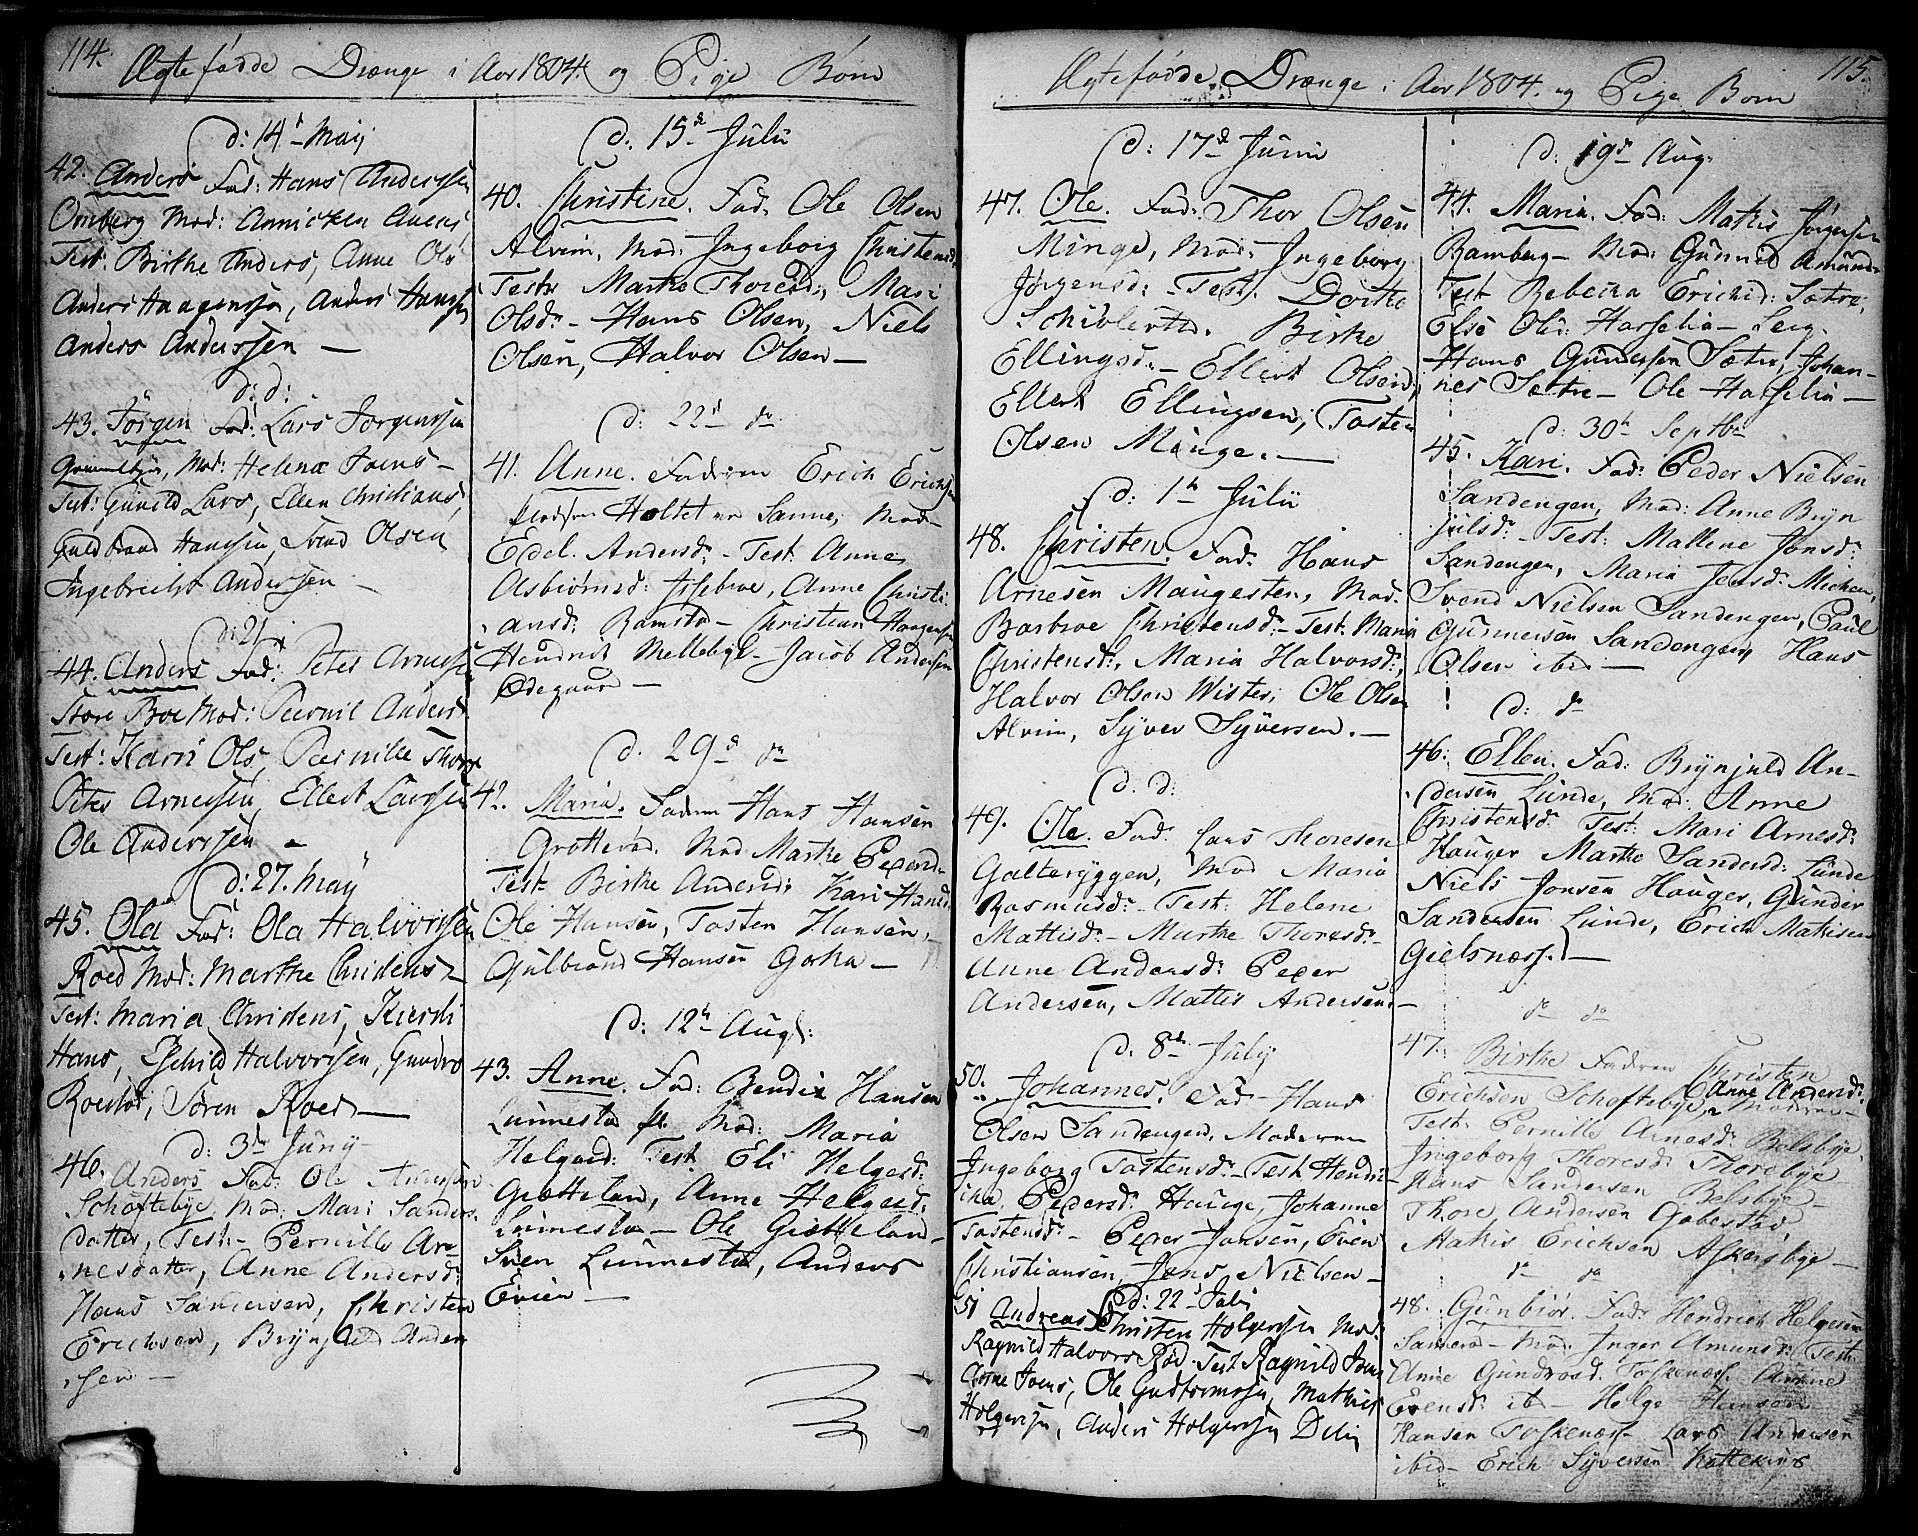 114.
Ægte fødde Drænge i Aar 1804. og Pige Børn
d: 14d May
42. Anders Fad: Hans Anderssen
Omberg Mod: Annicken Anens
Test: Birthe Anders, Anne Ols
Anders Haagenssen, Anders Hanssen
Anders Anderssen —
d: d:
43. Jörgen Fad: Lars Jorgenssen
Mod: Helena Joens-
Test: Gunild Lars, Ellen Christians,
Guldbrand Hanssen, Svend Olsen
Ingebrecht Anderssen —
d: 21
44. Anders Fad: Peter Arnessen
Store Boe Mod: Pernil Anders
Test: Karri Ols, Pernille Thore
Peter Arnessen, Ellert Larssen
Ole Anderssen —
d: 27. May
45. Ola Fad: Ola Halvorssen
Roed Mod: Marthe Christens
Test: Maria Christens, Kiersti
Hans, Eschild Halvorssen, Gunder
Roestød, Sören Roed —
d: 3die Juny
46. Anders Fad: Ole Anderssen
Schöftebye, Mod: Mari Sanders
datter, Test- Pernille Ar-
nesdatter, Anne Andersd:
Hans Sandersen, Christen
Erichsen, Brynjuld Ander
ssen —
d: 15de Julii
40. Christine. Fad: Ole Olsen
Alvim, Mod: Ingeborg Christensd:
Teste Marthe Thoresd:, Mari
Olsdr- Hans Olsen, Niels
Olsen, Halvor Olsen —
d: 22d do
41. Anne. Faderen Erich Erichsen
Holtet Sanne, Mod-
Edel. Andersdr- Test. Anne
Asbiørnsd: Issebroe, Anne Christi
ansd: Ramstø- Christian Haagensen
Hendrich Mellebye- Jacob Andersen
Ødegaar —
d: 29d do
42. Maria. Faderen Hans Hansen
Grotterød. Mod Marthe Pedersd-
Test- Birthe Andersd: Kari Hansd
Ole Hansen, Tosten Hansen,
Gulbrand Hansen Goska —
d: 12te Aug:
43. Anne. Fad: Bendix Hansen
Lunnestad Mod: Maria
Helgesd: Test. Eli Helgesd:
Grøtteland, Anne Helgesd:
Lunnestad- Ole Grøtteland-
Sven Lunnestad, Anders
Evien —
115.
Ægte fødde Drænge i Aar 1804. og Pige Børn
d: 17de Junii
47. Ole. Fad: Thor Olsen
Minge, Mod: Ingeborg
Jörgensd:- Test. Dorthe
Birthe
Ellingsd:- Ellert Olsen,
Ellert Ellingsen, Tosten
Olsen Minge. —
d: 1te Julii
48. Christen. Fad: Hans
Arnesen Maugesten, Mod.
Barbroe Christensd:- Test: Maria
Christensd:, Maria Halvorsd:,
Halvor Olsen Wister, Ole Olsen
Alvim, Syver Syversen. —
d: d:
49. Ole. Fad: Lars Thoresen
Galteryggen, Mod Maria
Rasmusd:- Test: Helene
Mattisd:- Marthe Thoresd:-
Anne Andersd: Peder
Andersen, Mattis Andersen —
d: 8de July
50. Johannes. Fad- Hans
Olsen Sandengen. Moderen
Ingeborg Tostensd:- Test Hendri
cha Pedersd: Hauge, Johanne
Tostensd:- Peder Jonsen, Even
Christiansen, Jens Nielsen-
d: 22d Juli
51 Andreas Christen Holgerssen Mod:
Ragnild Halvors Röd. Test Ragnild Joens
Anne Joens, Ole Gudtormssen, Mathias
Holgerssen, Anders Holgerssen Delin
d: 19de Aug:
44. Maria. Fad: Mathis Jörgensen
Ramberg- Mod: Gunnild Amunds
Test Rebecka Erichsd: Sætre,
Else Olsd: Hasselia- Leeg.
Hans Gundersen Sæter, Johan-
nes Sætre- Ole Hasselia —
d: 30te Septbr
45. Kari. Fad: Peder Nielsen
Sandengen, Mod: Anne Bryn
julsdr- Test: Mallene Jonsd:
Sandengen, Maria Jensd:
Svend Nielsen Sandengen, Paul
Gunnersen Sandengen, Hans
Olsen ibid —
d: do
46. Ellen. Fad: Brynjuld An-
dersen Lunde, Mod: Anne
Christensd: Test: Mari Arnesd:
Hauger Marthe Sandersd: Lunde
Niels Jonsen Hauger, Gunder
Sandersen Lunde, Erich Mathisen
Gielsnæss. —
do do
47. Birthe Faderen Christen
Erichsen Schöftebye, Moderen Anne Andersd:
Test: Pernille Arnesd: Bolsbye,
Ingeborg Thoresd: Thorsbye
Hans Sandersen Bolsbye-
Thore Andersen Gabestad
Mathis Erichsen Askersbye —
do do
48. Gunbiör. Fad: Hendrich Helgesen
Sannerød- Mod Inger Amundsd: Test:
Anne Gundrosd. Toskenæss. Anne
Evensd: ib- Helge Hansen
Hansen Toskenæss- Lars Andersen
ibid- Erich Syversen Kattekiær.